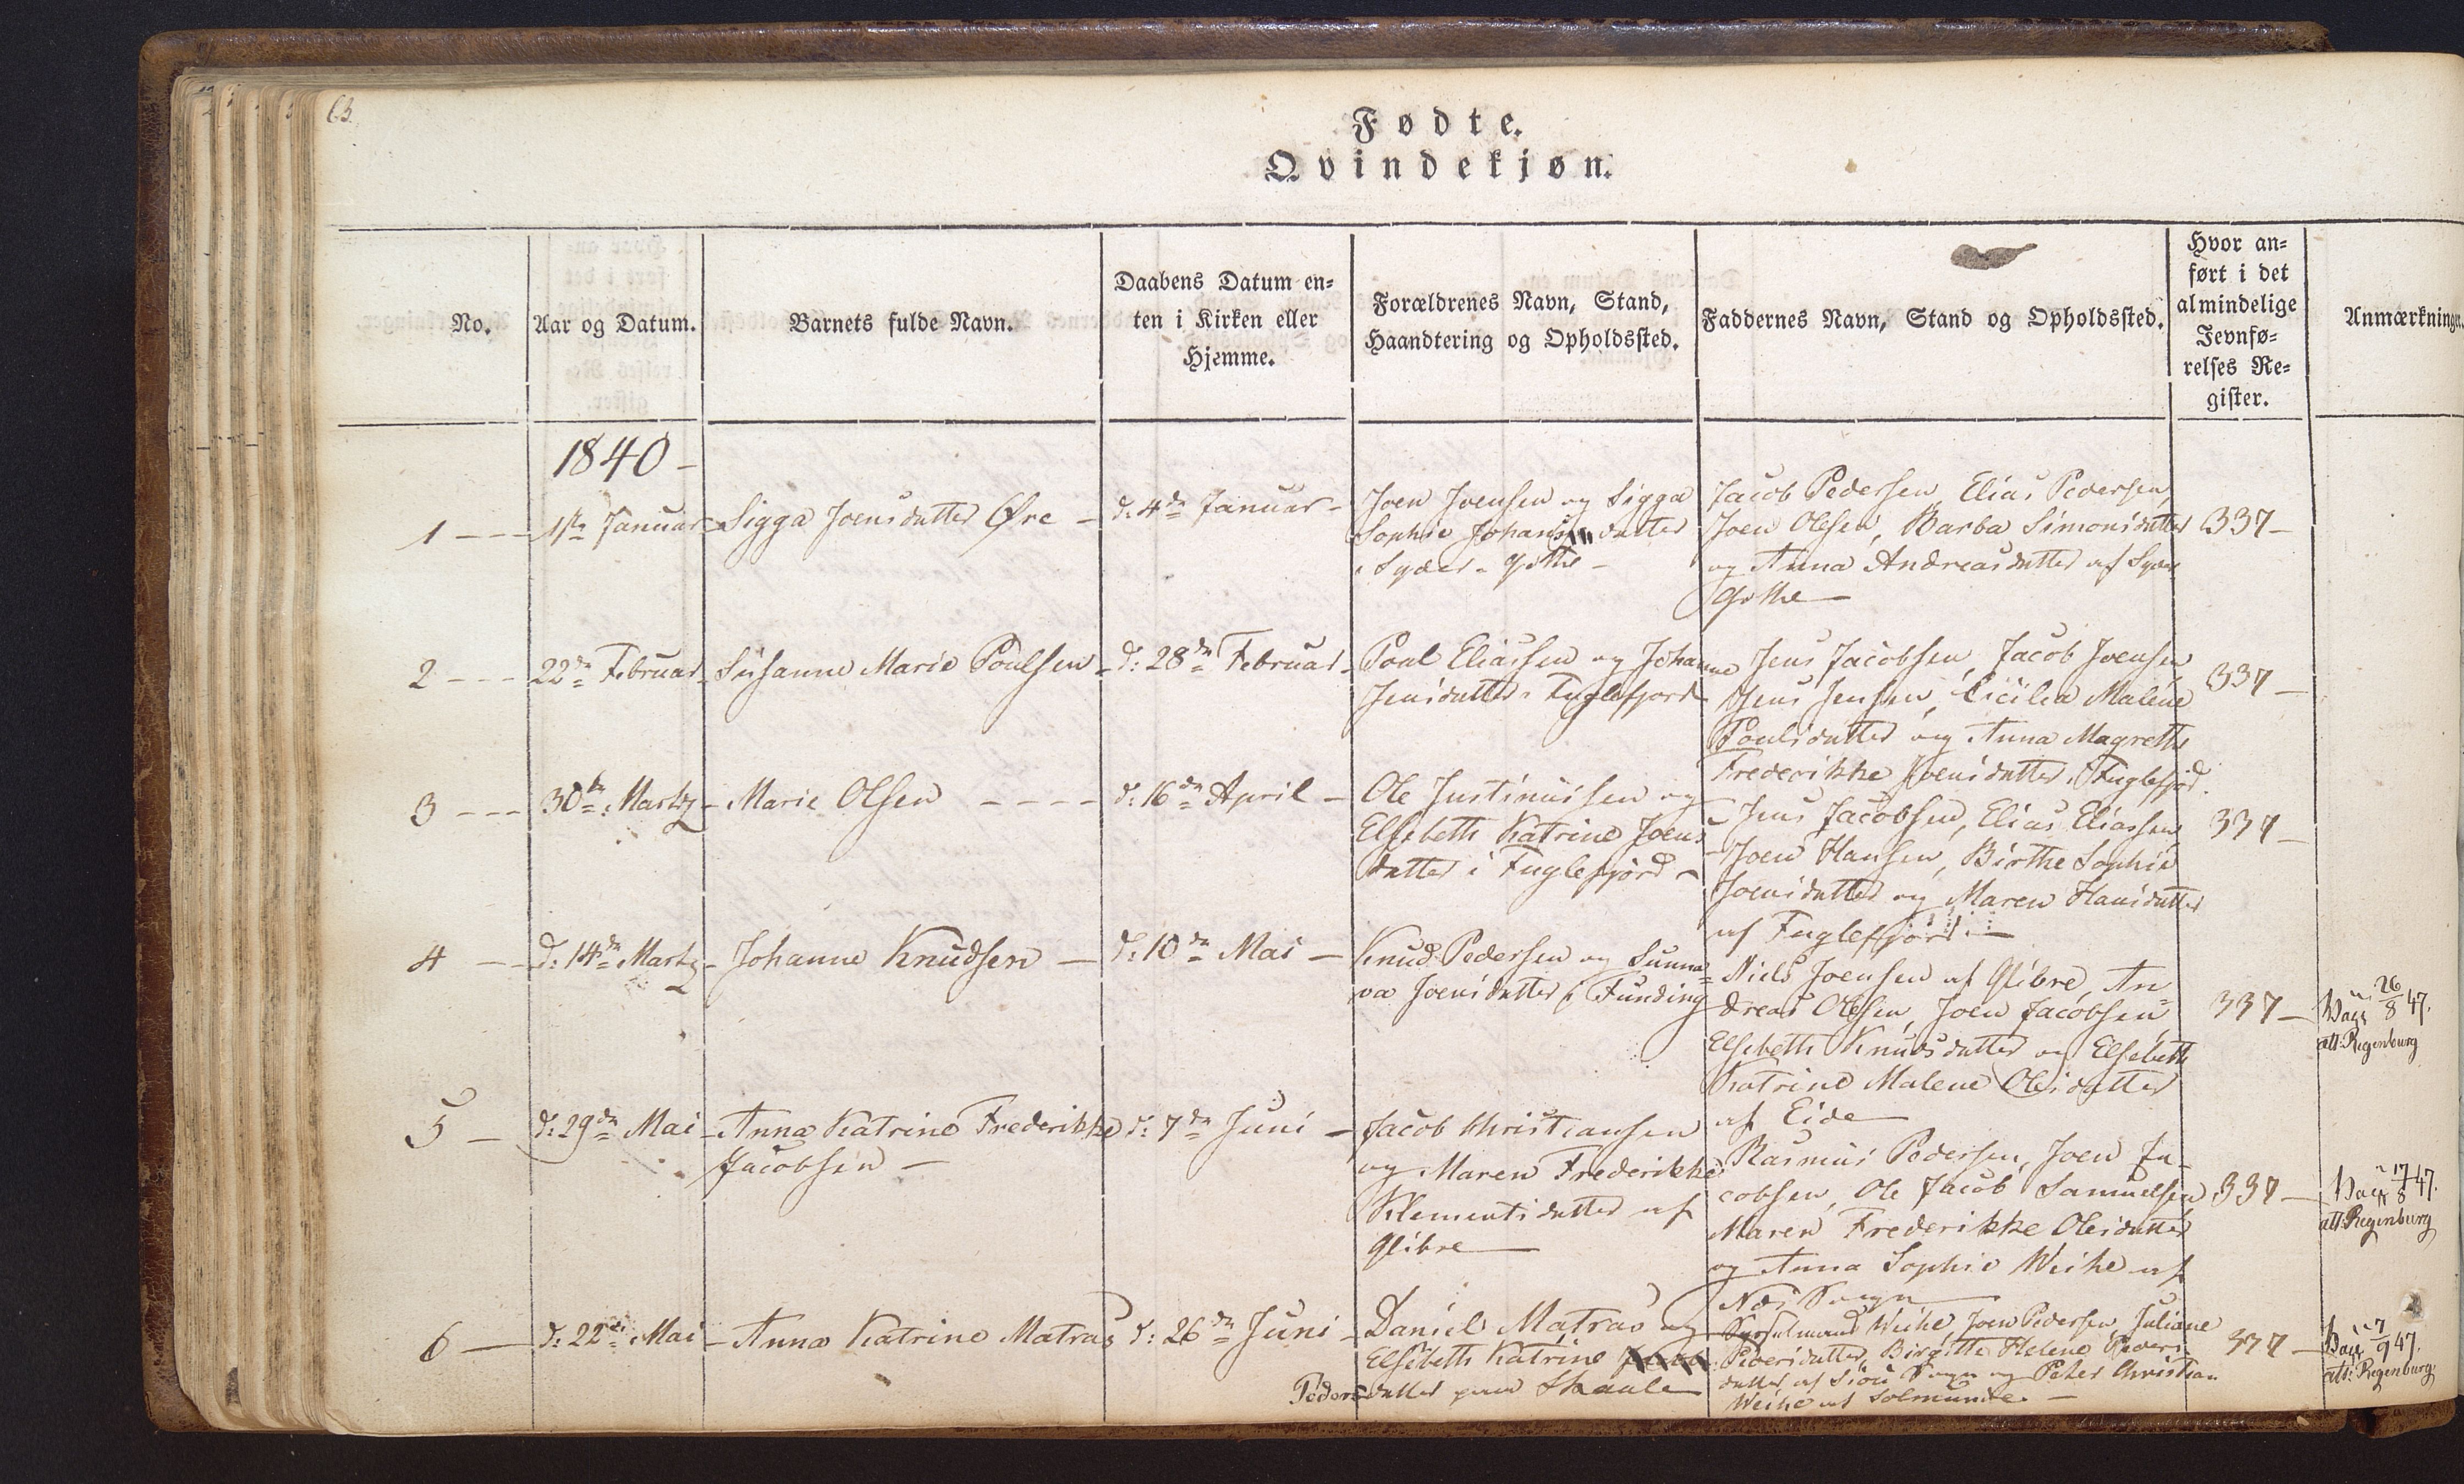 63.
Fødte.
Qvindekjøn.
No.
Aar og Datum.
Barnets fulde Navn.
Daabens Datum en-
ten i Kirken eller
Hjemme.
Forældrenes Navn, Stand,
Haandtering og Opholdssted.
Faddernes Navn, Stand og Opholdssted.
Hvor an-
ført i det
almindelige
Jevnfø-
relses Re-
gister.
Anmærkninger.
1840 -
1 - - -
1ste Januar
Sigga Joensdatter Øre -
d. 4de Januar -
Joen Joensen og Sigga
Sophie Johans datter
i Syder-Gøthe -
Jacob Pedersen, Elias Pedersen,
Joen Olesen, Barba Simonsdatter
og Anna Andreasdatter af Syder
Gøthe -
337 -
2 - - -
22de Februar -
Susanne Marie Poulsen -
d: 28de Februar -
Poul Eliassen og Johanne
Jensdatter i Fuglefjord
Jens Jacobsen, Jacob Joensen,
Jens Jensen, Cicilia Malene
Poulsdatter og Anna Magrethe
Frederikke Joensdatter i Fuglefjord.
337 -
3 - - -
30te Marts -
Marie Olsen - - - -
d: 16de April -
Ole Justinussen og
Elsebeth Katrine Joens
datter i Fuglefjord -
Jens Jacobsen, Elias Eliassen
Joen Hansen, Birthe Sophie
Joensdatter og Maren Hansdatter
af Fuglefjord. -
337 -
4 - -
d: 14de Marts -
Johanne Knudsen -
d: 10de Mai -
Knud Pedersen og Sunne-
va Joensdatter i Funding
Niels Joensen af Glibre, An-
dreas Olesen, Joen Jacobsen
Elsebeth Knudsdatter og Elsebeth
Katrine Malene Olesdatter
af Eide -
337 -
Vacc 26/8 47.
att: Regenburg
5 -
d: 29de Mai -
Anna Katrine Frederikke
Jacobsen -
d: 7de Juni -
Jacob Christiansen
og Maren Frederikke
Klementsdatter af
Glibre -
Rasmus Pedersen, Joen Ja-
cobsen, Ole Jacob Samuelsen
Maren Frederikke Olesdatter
og Anna Sophie Weihe af
Næs Sogn
337 -
Vacc 17/8 47.
att: Regenburg
6 -
d: 22de Mai -
Anna Katrine Matras
d: 26de Juni -
Daniel Matras og
Elsebeth Katrine
Peders datter paa Skaale
Sysselmand Weihe, Joen Pedersen, Juliane
Pedersdatter, Birgitte Helene Peders-
datter af Siov Sogn og Peter Christian
Weihe af Solmunde. -
337 -
Vacc 7/9 47.
att: Regenburg